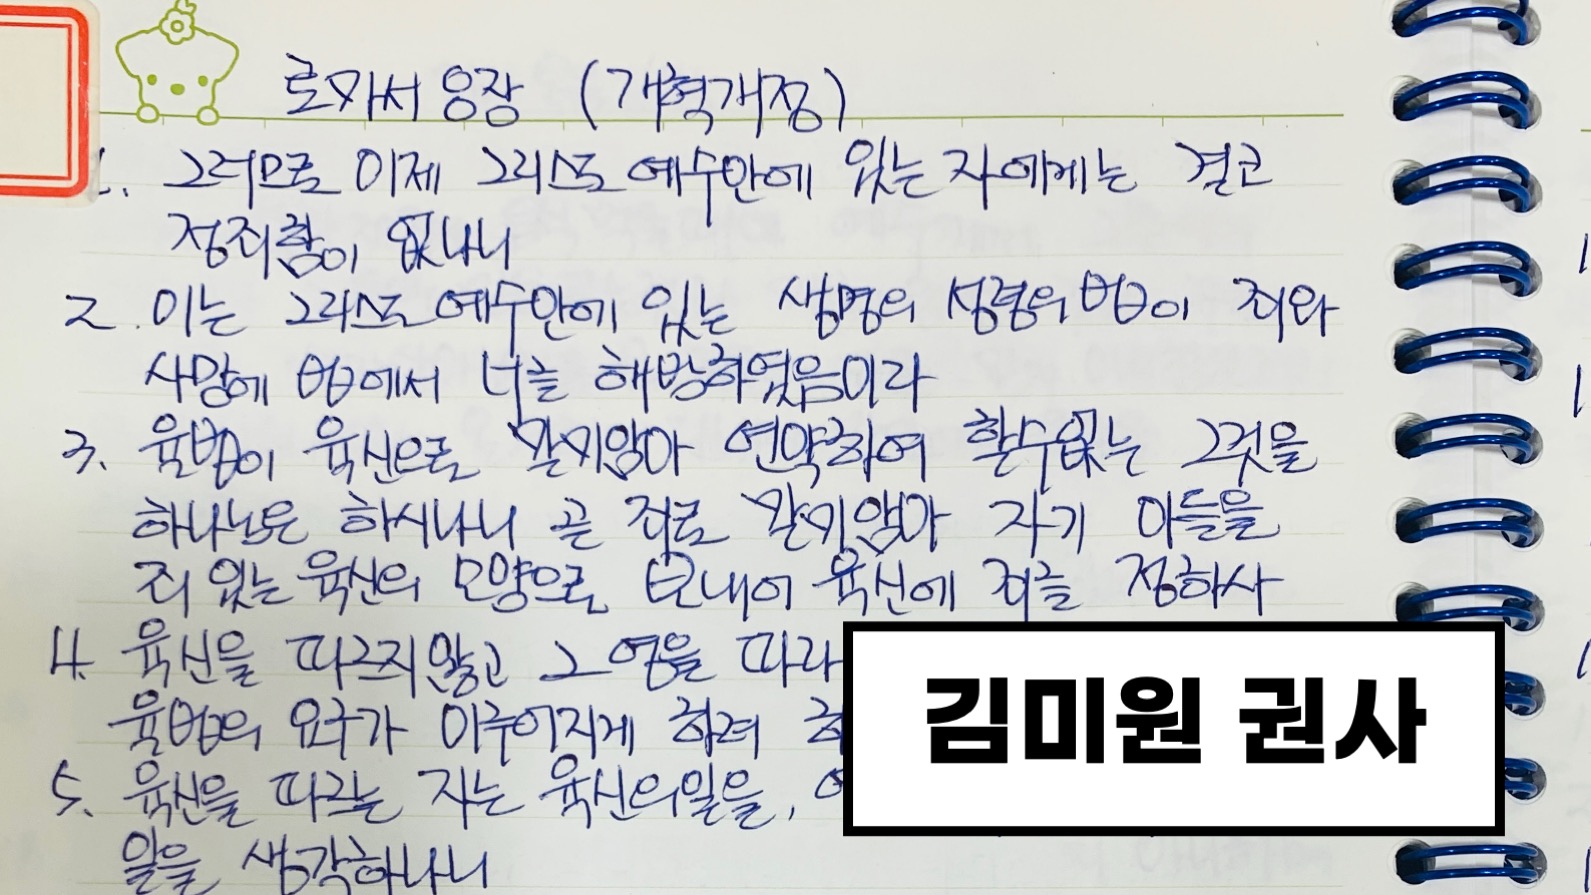 로마서 8장 (개혁개정)
1. 그러므로 이제 그리스도 예수안에 있는 자에게는 결코
정죄함이 없나니
2. 이는 그리스도 예수안에 있는 생명의 성령의 법이 죄와
사망에 법에서 너를 해방하였음이라
3. 율법이 육신으로 말미암아 연약하여 할수없는 그것을
하나님은 하시나니 곧 죄로 말미암아 자기 아들을
죄 있는 육신의 모양으로 보내어 육신에 죄를 정하사
4. 육신을 따르지않고 그 영을 따라
율법의 요구가 이루어지게 하려 하
5. 육신을 따르는 자는 육신의일을,
일을 생각하나니
김미원 권사